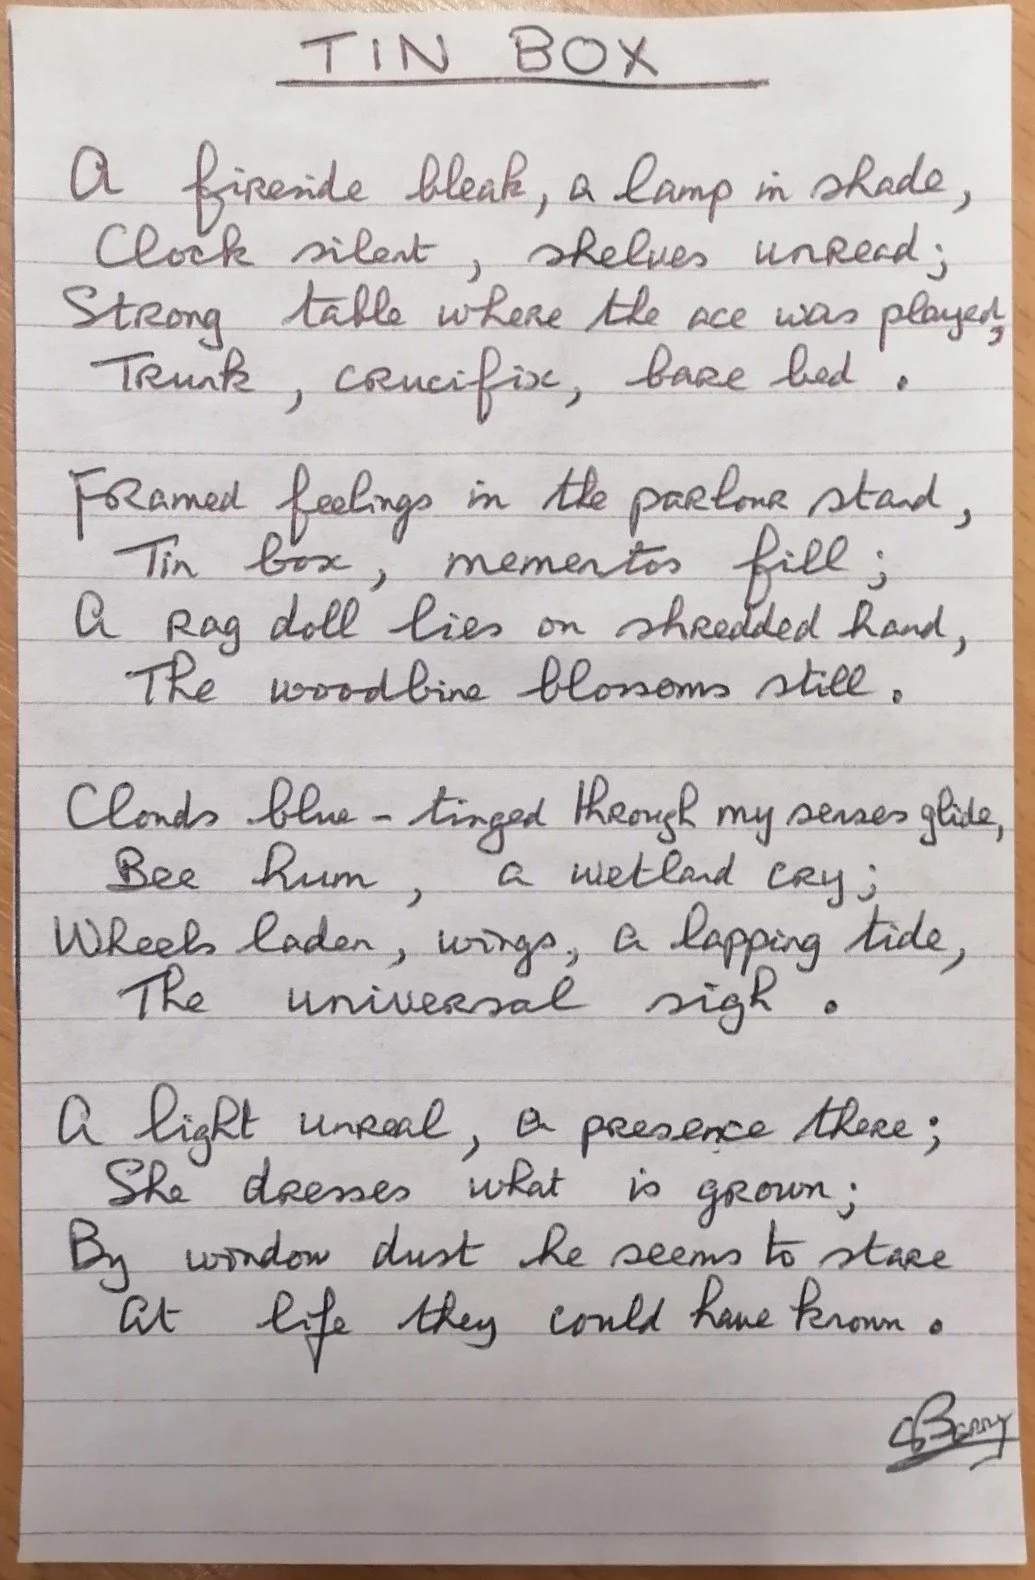 TIN BOX
A fireside bleak, a lamp in shade,
Clock silent, shelves unread;
Strong table where the ace was played,
Trunk, crucifix, bare bed.
Framed feelings in the parlour stand,
Tin box, mementos fill;
A rag doll lies on shredded hand,
The woodbine blossoms still.
Clouds blue-tinged through my senses glide,
Bee hum, a wetland cry;
Wheels laden, wings, a lapping tide,
The universal sigh.
A light unreal, a presence there;
She dresses what is grown;
By window dust he seems to stare
At life they could have known.
SBarry